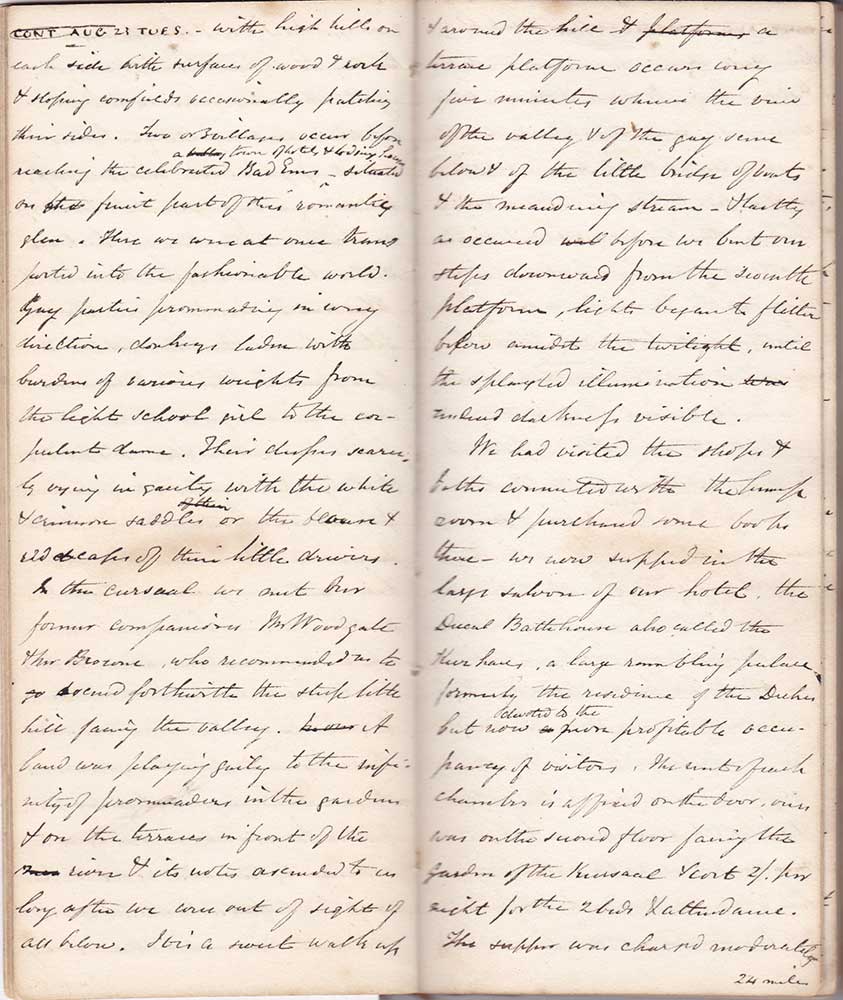 CONT AUG 23 TUES. - with high hills on
each side with surfaces of wood & rock
& sloping cornfields occasionally patching
their sides. Two or 3 villages occur before
a town of hotels & lodging houses
reaching the celebrated Bad Ems - situated
on the finest part of this romantic
glen. Here we were at once trans
ported into the fashionable world.
Gay parties promenading in every
direction, donkeys laden with
burdens of various weights from
the light school girl to the cor-
pulent dame. Their dresses scarce-
ly vying in gaiety with the white
of their
& crimson saddles or the blouse &
red caps of their little drivers.
In the cursaal we met our
former companions Mr Woodgate
& Mr Browne, who recommended us to
go ascend forthwith the steep little
hill facing the valley. A
band was playing gaily to the infi-
nity of promenaders in the gardens
& on the terraces in front of the
river & its notes ascended to us
long after we were out of sight of
all below. It is a sweet walk up
& around the hill & platforms a
terrace platform occurs every
five minutes whence the view
of the valley & of the gay scene
below & of the little bridge of boats
& the meandering stream - & lastly
as occurred before we bent our
steps downward from the seventh
platform, lights began to flitter
below amidst the twilight, until
the splangled illumination
rendered darkness visible.
We had visited the shops &
baths connected with the pump
room & purchased some books
there - we now supped in the
large saloon of our hotel, the
Ducal Bathhouse also called the
Kurhaus, a large rambling palace
formerly the residence of the Dukes
devoted to the
but now more profitable occu-
pancy of visitors. The rent of each
chamber is affixed on the door, ours
was on the second floor facing the
garden of the Kursaal & cost 2/. per
night for the 2 beds & attendance.
The supper was charged moderately
24 miles